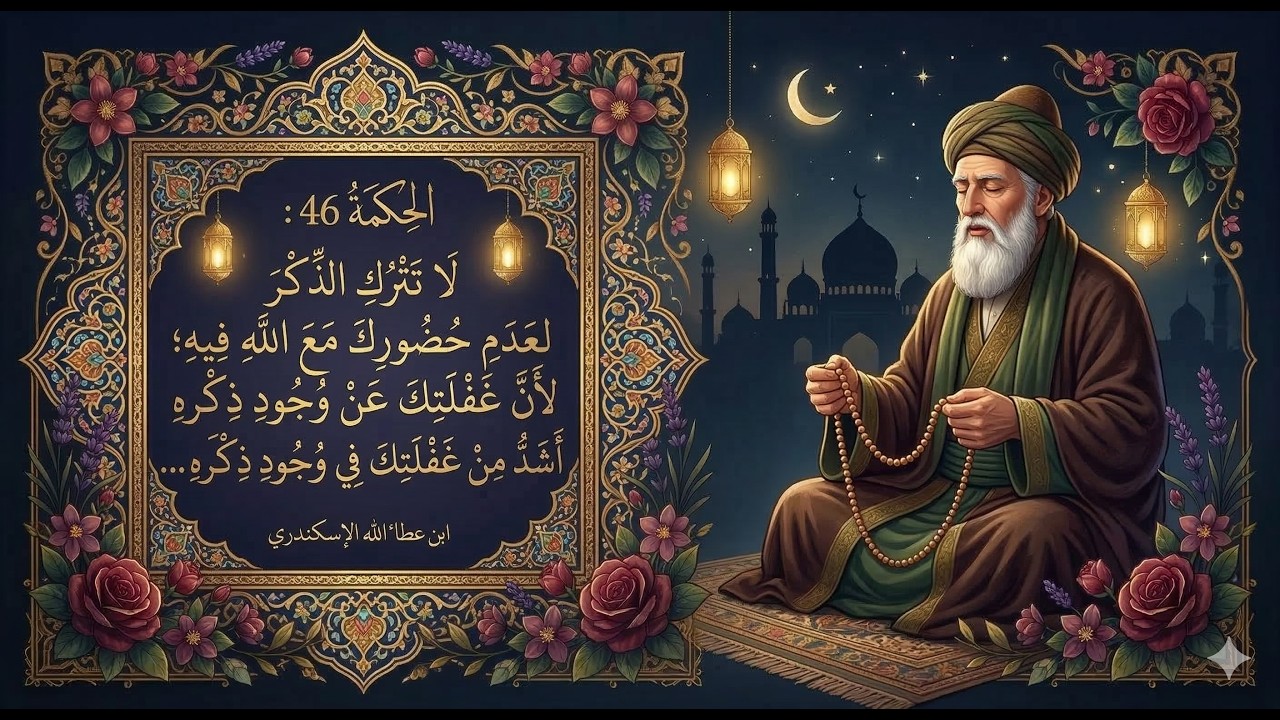 الحِكمَةُ 46 :
لَا تَتْرُكِ الذِّكْرَ
لعَدَمِ حُضُورِكَ مَعَ اللَّهِ فِيهِ؛
لأَنَّ غَفْلَتِكَ عَنْ وُجُودِ ذِكْرهِ
أَشَدُّ مِنْ غَفْلَتِكَ فِي وُجُودِ ذِكْرَهِ...
ابن عطاء الله الإسكندري